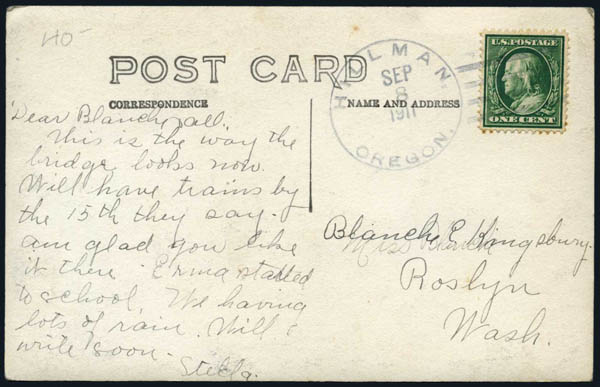 40-
POST CARD
CORRESPONDENCE
NAME AND ADDRESS
HILLMAN,
SEP
8
1911
OREGON.
U.S. POSTAGE
ONE CENT
Dear Blanche, all,
This is the way the
bridge looks now.
Will have trains by
the 15th they say.
am glad you like
it there Erma started
to school. We having
lots of rain. Will
write soon.
Stella.
Blanche E. Kingsbury.
Miss
Roslyn
Wash.